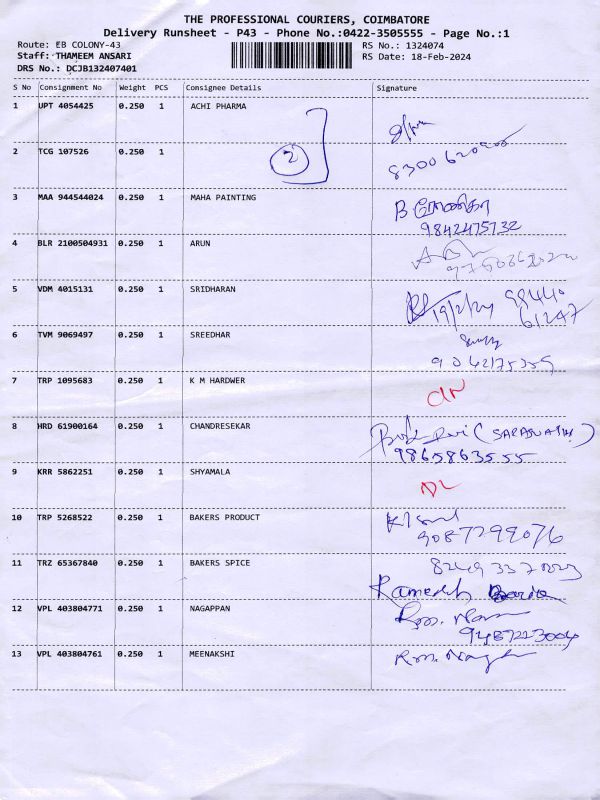 THE PROFESSIONAL COURIERS, COIMBATORE
Delivery Runsheet - P43 - Phone No.:0422-3505555 - Page No.:1
Route: EB COLONY-43 RS No.: 1324074
Staff: THAMEEM ANSARI RS Date: 18-Feb-2024
DRS No.: DCJB132407401
S No Consignment No Weight PCS Consignee Details Signature
1 UPT 4054425 0.250 1 ACHI PHARMA
2 TCG 107526 0.250 1
2
3 MAA 944544024 0.250 1 MAHA PAINTING
9842475732
4 BLR 2100504931 0.250 1 ARUN
5 VDM 4015131 0.250 1 SRIDHARAN
19/2/24 98440
61247
6 TVM 9069497 0.250 1 SREEDHAR
9042175359
7 TRP 1095683 0.250 1 K M HARDWER
8 HRD 61900164 0.250 1 CHANDRESEKAR
9865863555
9 KRR 5862251 0.250 1 SHYAMALA
10 TRP 5268522 0.250 1 BAKERS PRODUCT
9087299076
11 TRZ 65367840 0.250 1 BAKERS SPICE
Ramesh
12 VPL 403804771 0.250 1 NAGAPPAN
9487223004
13 VPL 403804761 0.250 1 MEENAKSHI